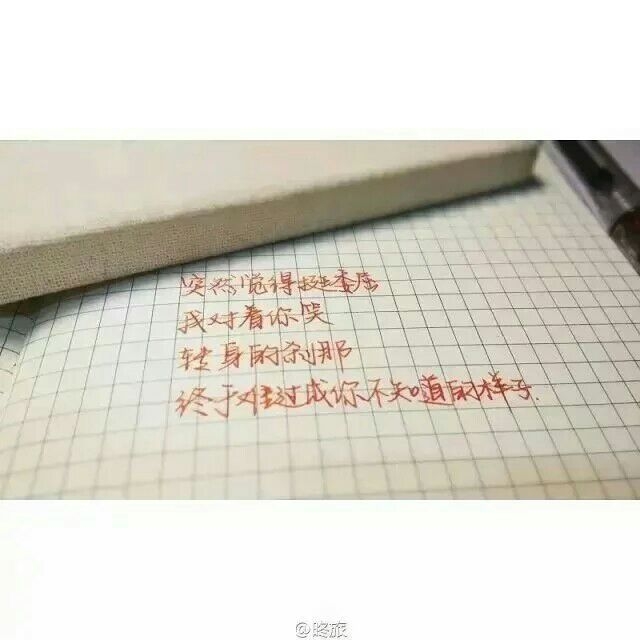 突然觉得挺委屈
我对着你笑
转身的刹那
终于难过成你不知道的样子.
@咚旅